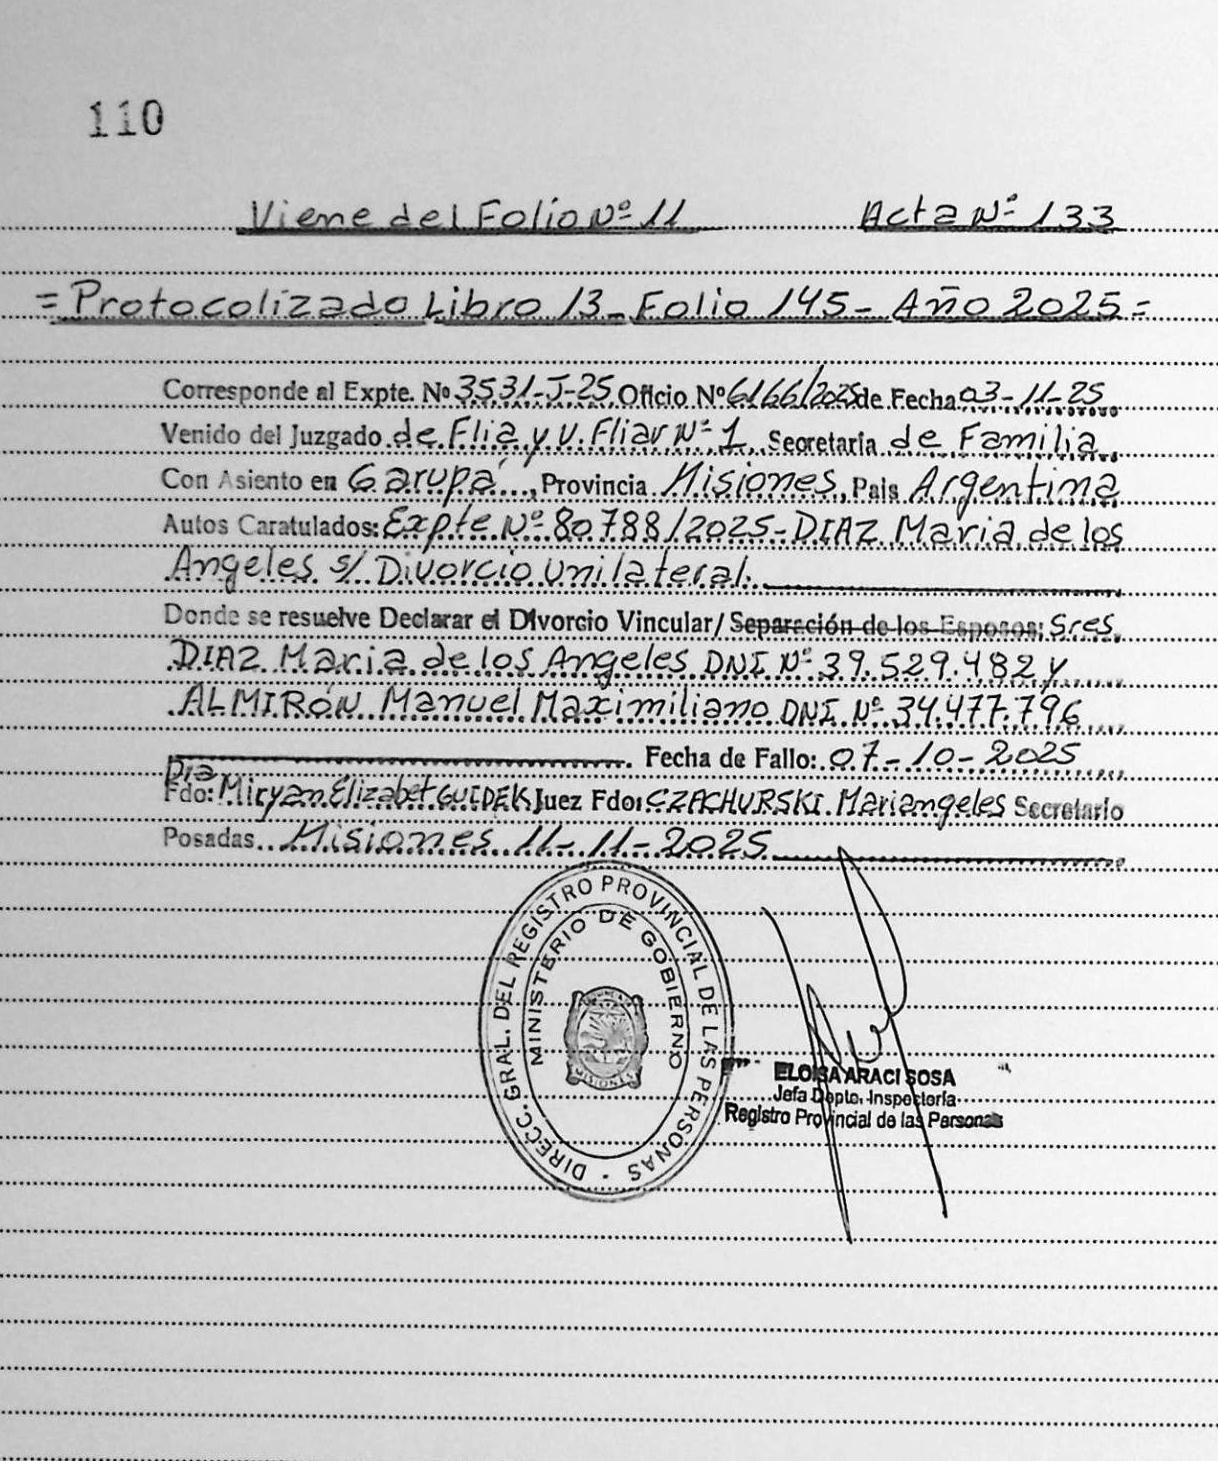 110
Viene del Folio Nº 11 Acta Nº 133
= Protocolizado Libro 13 - Folio 145 - Año 2025 =
Corresponde al Expte. Nº 3531-J-25 Oficio Nº 6166/2025 de Fecha 03-11-25
Venido del Juzgado de Flia y V. Fliar Nº 1 Secretaría de Familia
Con Asiento en Garupá, Provincia Misiones, Pais Argentina
Autos Caratulados: Expte Nº 80788/2025 - DIAZ Maria de los
Angeles s/ Divorcio Unilateral.
Donde se resuelve Declarar el Divorcio Vincular/ Separación de los Esposos: Sres.
DIAZ Maria de los Angeles DNI Nº 39.529.482 y
ALMIRÓN Manuel Maximiliano DNI Nº 34.477.796
Fecha de Fallo: 07-10-2025
Dra
Fdo: Miryan Elizabet GUIDEK Juez Fdo: CZACHURSKI Mariangeles Secretario
Posadas Misiones 11-11-2025
DIRECC. GRAL. DEL REGISTRO PROVINCIAL DE LAS PERSONAS
MINISTERIO DE GOBIERNO
MISIONES
ELOISA ARACI SOSA
Jefa Dpto. Inspectoría
Registro Provincial de las Personas